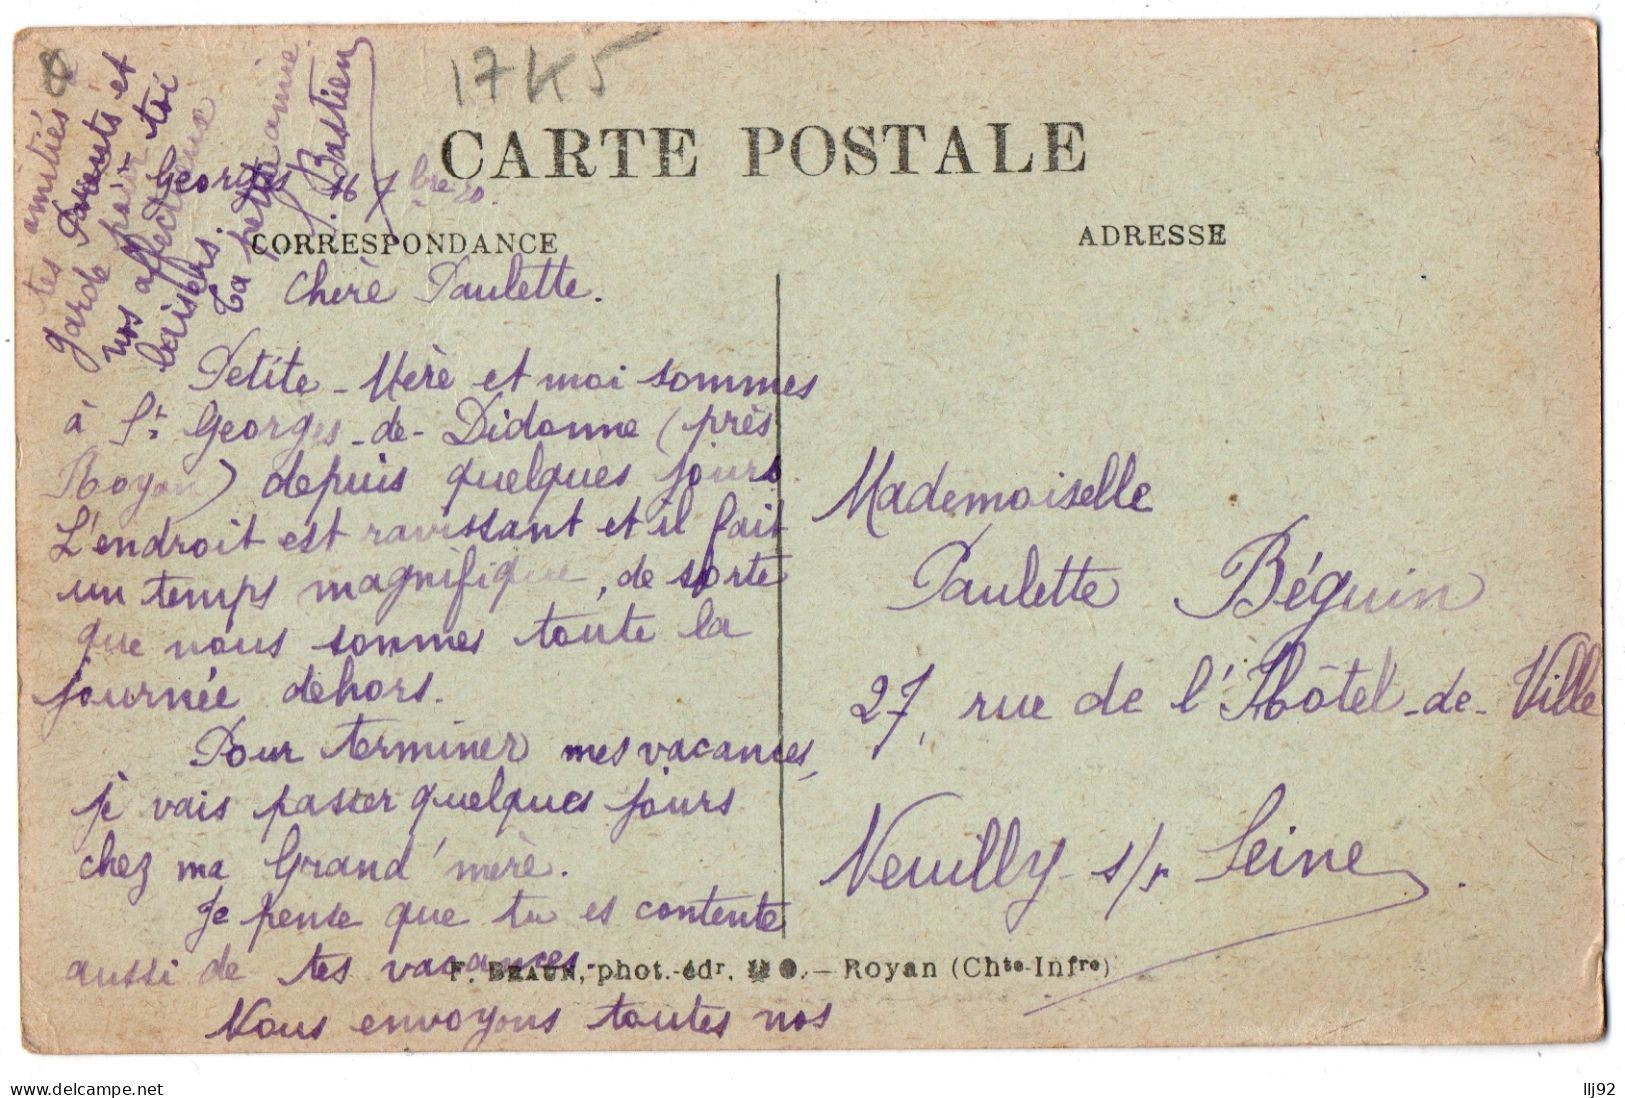 17K5
CARTE POSTALE
CORRESPONDANCE
ADRESSE
Georges 16 7bre 20.
Chère Paulette.
Petite-Mère et moi sommes
à St Georges-de-Didonne (près
Royan) depuis quelques jours
L'endroit est ravissant et il fait
un temps magnifique, de sorte
que nous sommes toute la
journée dehors.
Pour terminer mes vacances,
je vais passer quelques jours
chez ma Grand'mère.
Je pense que tu es contente
aussi de tes vacances.
Nous envoyons toutes nos
amitiés à
tes Parents et
garde pour toi
nos affectueux
baisers.
Ta petite amie
S. Bastien
Mademoiselle
Paulette Béguin
27, rue de l'Hôtel-de-Ville
Neuilly s/r Seine.
F. BRAUN, phot.-édr, Royan (Chte-Infre)
delcampe.net
llj92